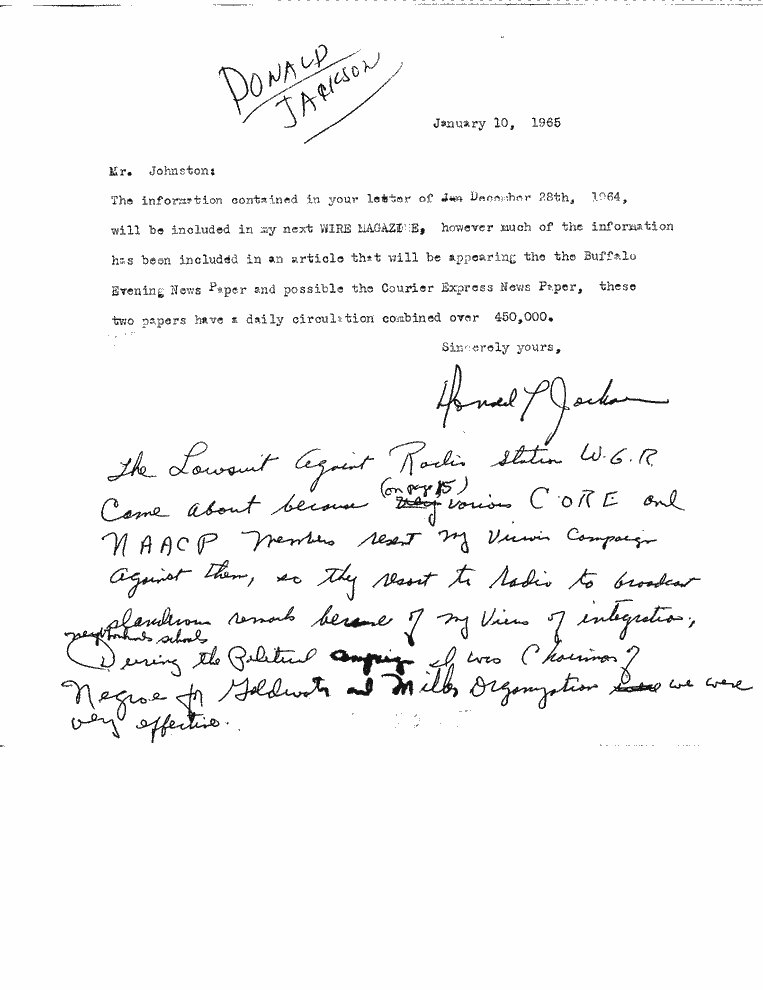 DONALD
JACKSON
January 10, 1965
Mr. Johnston:
The information contained in your letter of Jan December 28th, 1964,
will be included in my next WIRE MAGAZINE, however much of the information
has been included in an article that will be appearing the the Buffalo
Evening News Paper and possible the Courier Express News Paper, these
two papers have a daily circulation combined over 450,000.
Sincerely yours,
Donald L Jackson
The Lawsuit Against Radio Station W.G.R.
(on page 15)
Came About because various CORE and
NAACP Members resent my Views Campaign
Against them, so they resort to Radio to broadcast
slanderous remarks because of my Views of integration,
neighborhoods schools
During the Political campaign I was Chairman of
Negroe for Goldwater and Miller Organization we were
very effective.